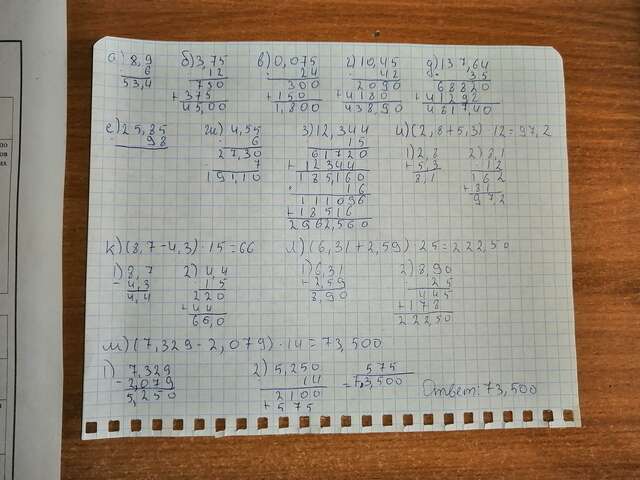 а) 8,9 б) 3,75 в) 0,075 г) 10,45 д) 137,64
6 12 24 42 35
53,4 750 300 2090 68820
+375 +150 +4180 +41292
45,00 1,800 438,90 4817,40
е) 25,85 ж) 4,55 з) 12,344 и) (2,8+5,3) · 12 = 97,2
98 6 15
27,30 61720 1) 2,8 2) 8,1
7 +12344 +5,3 12
191,10 185,160 8,1 162
16 +81
111096 97,2
+18516
2962,560
к) (8,7-4,3) · 15 = 66 л) (6,31+2,59) 25 = 222,50
1) 8,7 2) 4,4 1) 6,31 2) 8,90
-4,3 15 +2,59 25
4,4 220 8,90 445
+44 +178
66,0 222,50
м) (7,329-2,079) · 14 = 73,500
1) 7,329 2) 5,250 575
-2,079 14 = 73,500 Ответ: 73,500
5,250 2100
+575